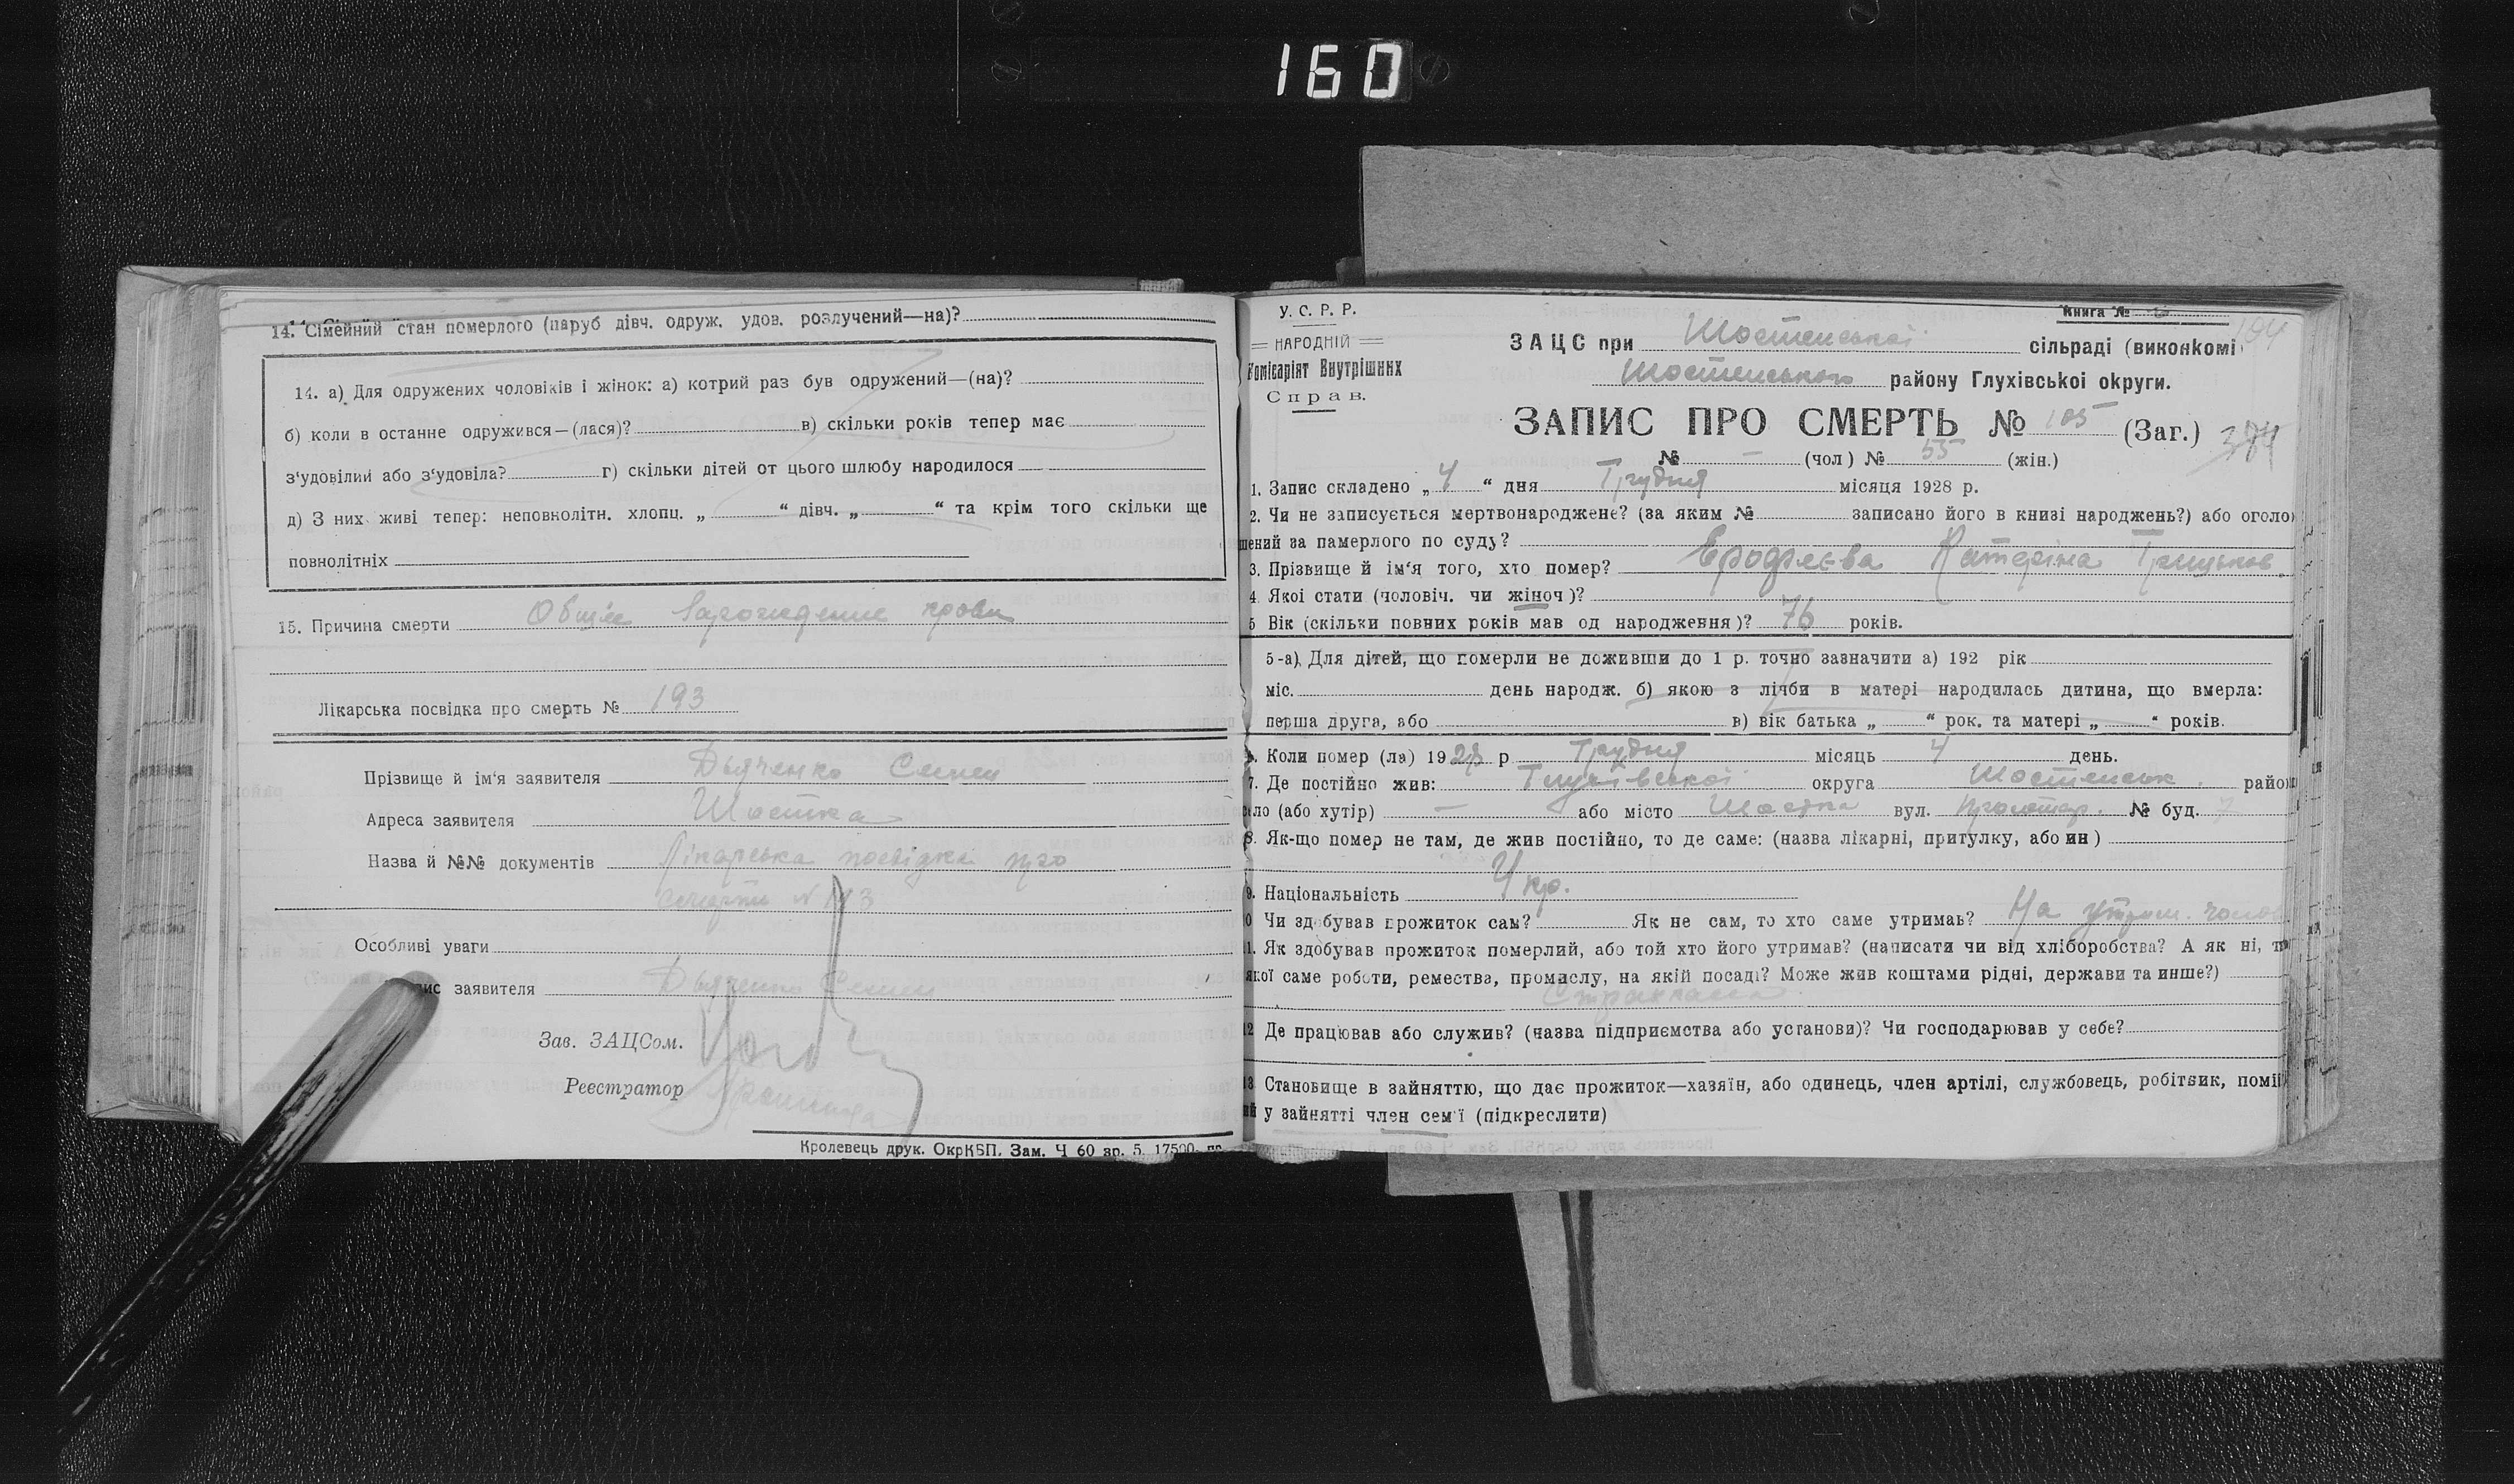 160
14. Сімейний стан померлого (паруб дівч. одруж. удов. розлучений—на)?
14. а) Для одружених чоловіків і жінок: а) котрий раз був одружений—(на)?
б) коли в останне одружився—(лася)? в) скільки років тепер має
з‘удовілий або з‘удовіла? г) скільки дітей от цього шлюбу народилося
д) З них живі тепер: неповнолітн. хлопц. „ “ дівч. „ “ та крім того скільки ще
повнолітніх
15. Причина смерти крови
Лікарська посвідка про смерть № 193
Прізвище й ім‘я заявителя Дьяченко Семен
Адреса заявителя Шостка
Назва й №№ документів Лікарська посвідка про
смерть N 193
Особливі уваги
ис заявителя Дьяченко Семен
Зав. ЗАЦСом.
Реєстратор
Кролевець друк. ОкрКВП. Зам. Ч 60 ар. 5. 17500
У. С. Р. Р.
НАРОДНІЙ
Комісаріят Внутрішніх
Справ.
Книга №
ЗАЦС при Шостенської сільраді (виконкомі
Шостенського району Глухівської округи.
ЗАПИС ПРО СМЕРТЬ № 105 (Заг.) 384
№ — (чол) № 55 (жін.)
1. Запис складено „ 4 “ дня Грудня місяця 1928 р.
2. Чи не записується мертвонароджене? (за яким № записано його в книзі народжень?) або оголо
шений за памерлого по суду?
3. Прізвище й ім‘я того, хто помер? Ерофеєва Катеріна
4. Якої стати (чоловіч. чи жіноч)?
5 Вік (скільки повних років мав од народження)? 76 років.
5-а) Для дітей, що померли не доживши до 1 р. точно зазначити а) 192 рік
міс. день народж. б) якою з лічби в матері народилась дитина, що вмерла:
перша друга, або в) вік батька „ “ рок. та матері „ “ років.
6. Коли помер (ла) 1928 р Грудня місяць 4 день.
7. Де постійно жив: Глухівської округа Шостенськ. район
село (або хутір) — або місто Шостка вул. № буд. 7
8. Як-що помер не там, де жив постійно, то де саме: (назва лікарні, притулку, або ин)
9. Національність Укр.
0 Чи здобував прожиток сам? Як не сам, то хто саме утримав? На утрим.
1. Як здобував прожиток померлий, або той хто його утримав? (написати чи від хліборобства? А як ні, т
якої саме роботи, ремества, промислу, на якій посаді? Може жив коштами рідні, держави та инше?)
12 Де працював або служив? (назва підприємства або установи)? Чи господарював у себе?
13. Становище в зайняттю, що дає прожиток—хазяїн, або одинець, член артілі, службовець, робітник, помі
у зайнятті член сем‘ї (підкреслити)